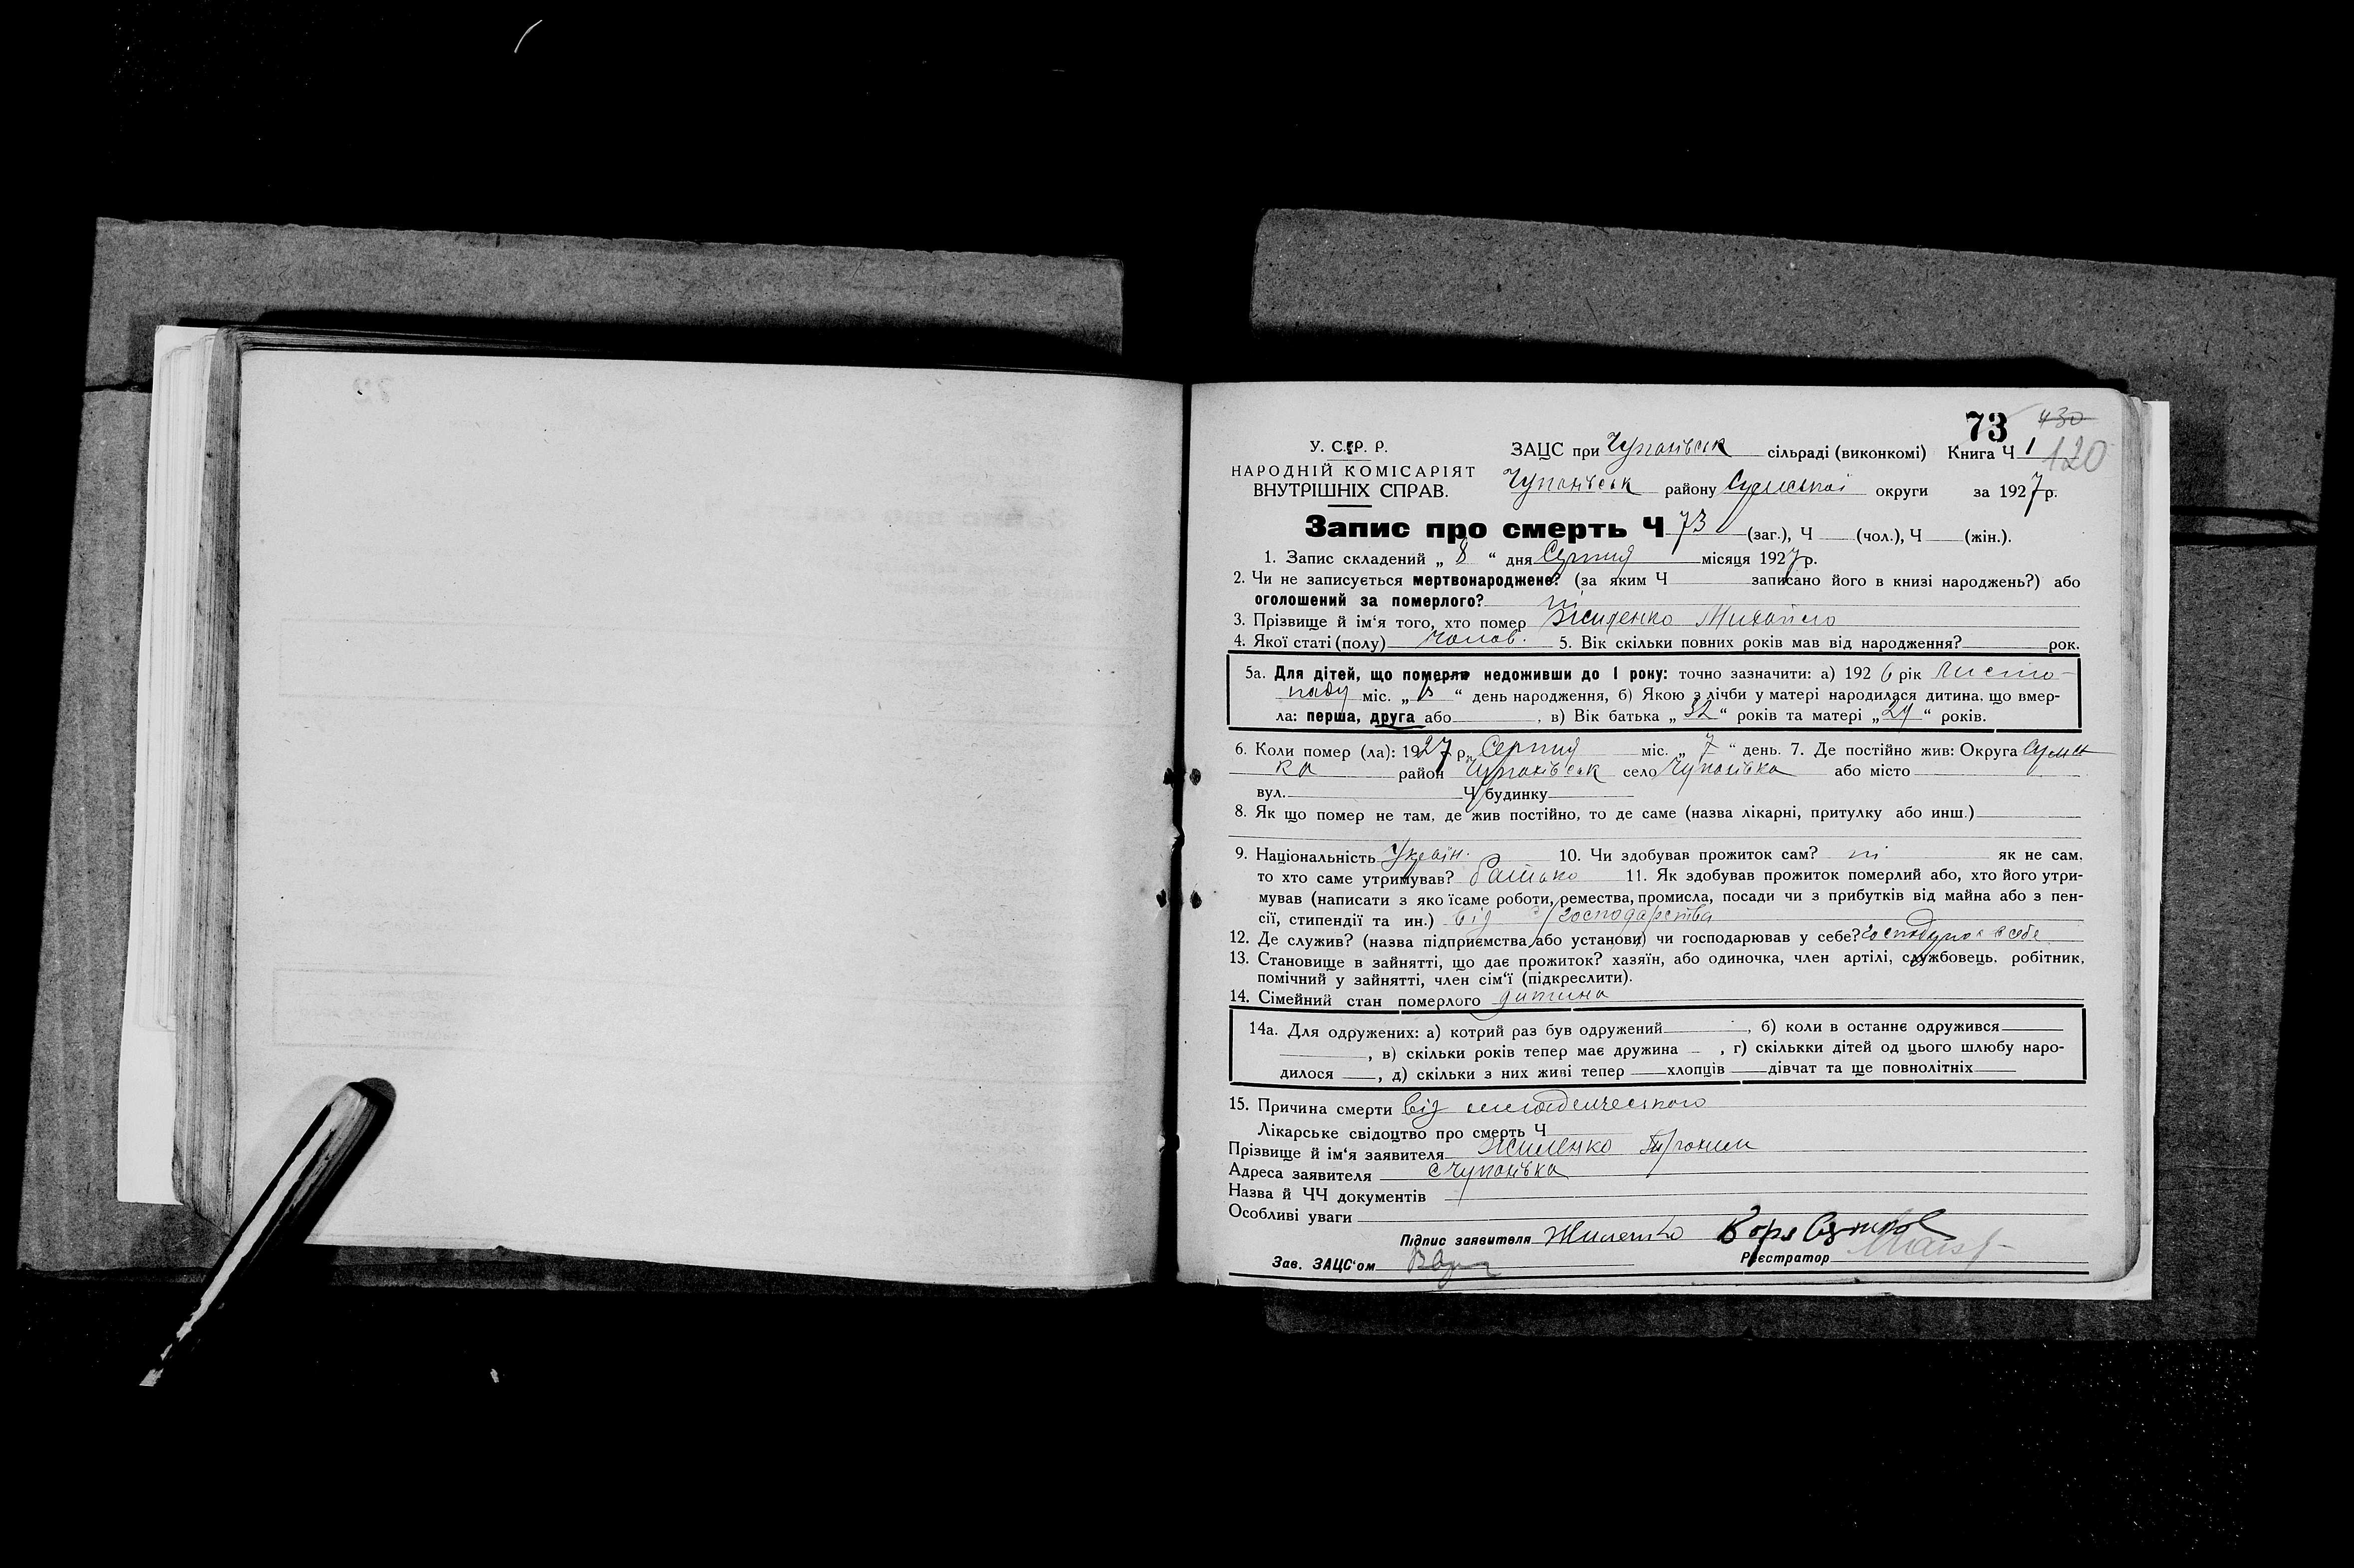 73 430
У. С. Р. Р. ЗАЦС при Чупахівськ сільраді (виконкомі) Книга Ч 1 120
НАРОДНІЙ КОМІСАРІЯТ
ВНУТРІШНІХ СПРАВ. Чупахівськ району Сумської округи за 1927 р.
Запис про смерть Ч 73 (заг.), Ч (чол.), Ч (жін.).
1. Запис складений „ 8 “ дня Серпня місяця 1927 р.
2. Чи не записується мертвонароджене? (за яким Ч записано його в книзі народжень?) або
оголошений за померлого? ні
3. Прізвище й ім‘я того, хто помер Жиленко Михайло
4. Якої статі (полу) чолов. 5. Вік скільки повних років мав від народження? рок.
5а. Для дітей, що померли недоживши до 1 року: точно зазначити: а) 192 6 рік Листо-
паду міс. „ “ день народження, б) Якою з лічби у матері народилася дитина, що вмер-
ла: перша, друга або , в) Вік батька „ 32 “ років та матері „ 27 “ років.
6. Коли помер (ла): 1927 р. Серпня міс. „ 7 “ день. 7. Де постійно жив: Округа Сумсь
ка район Чупахівськ село Чупахівка або місто
вул. Ч будинку
8. Як що помер не там, де жив постійно, то де саме (назва лікарні, притулку або инш.)
9. Національність Україн. 10. Чи здобував прожиток сам? ні як не сам,
то хто саме утримував? батько 11. Як здобував прожиток померлий або, хто його утри-
мував (написати з яко їсаме роботи, ремества, промисла, посади чи з прибутків від майна або з пен-
сії, стипендії та ин.) від с/господарства
12. Де служив? (назва підприємства або установи) чи господарював у себе? в себе
13. Становище в зайнятті, що дає прожиток? хазяїн, або одиночка, член артілі, службовець, робітник,
помічний у зайнятті, член сім‘ї (підкреслити).
14. Сімейний стан померлого дитина
14а. Для одружених: а) котрий раз був одружений , б) коли в останнє одружився
, в) скільки років тепер має дружина , г) скількки дітей од цього шлюбу наро-
дилося , д) скільки з них живі тепер хлопців дівчат та ще повнолітніх
15. Причина смерти від младенческого
Лікарське свідоцтво про смерть Ч
Прізвище й ім‘я заявителя Жиленко Трохим
Адреса заявителя с Чупахівка
Назва й ЧЧ документів
Особливі уваги
Підпис заявителя Жиленко
Зав. ЗАЦС‘ом Реєстратор